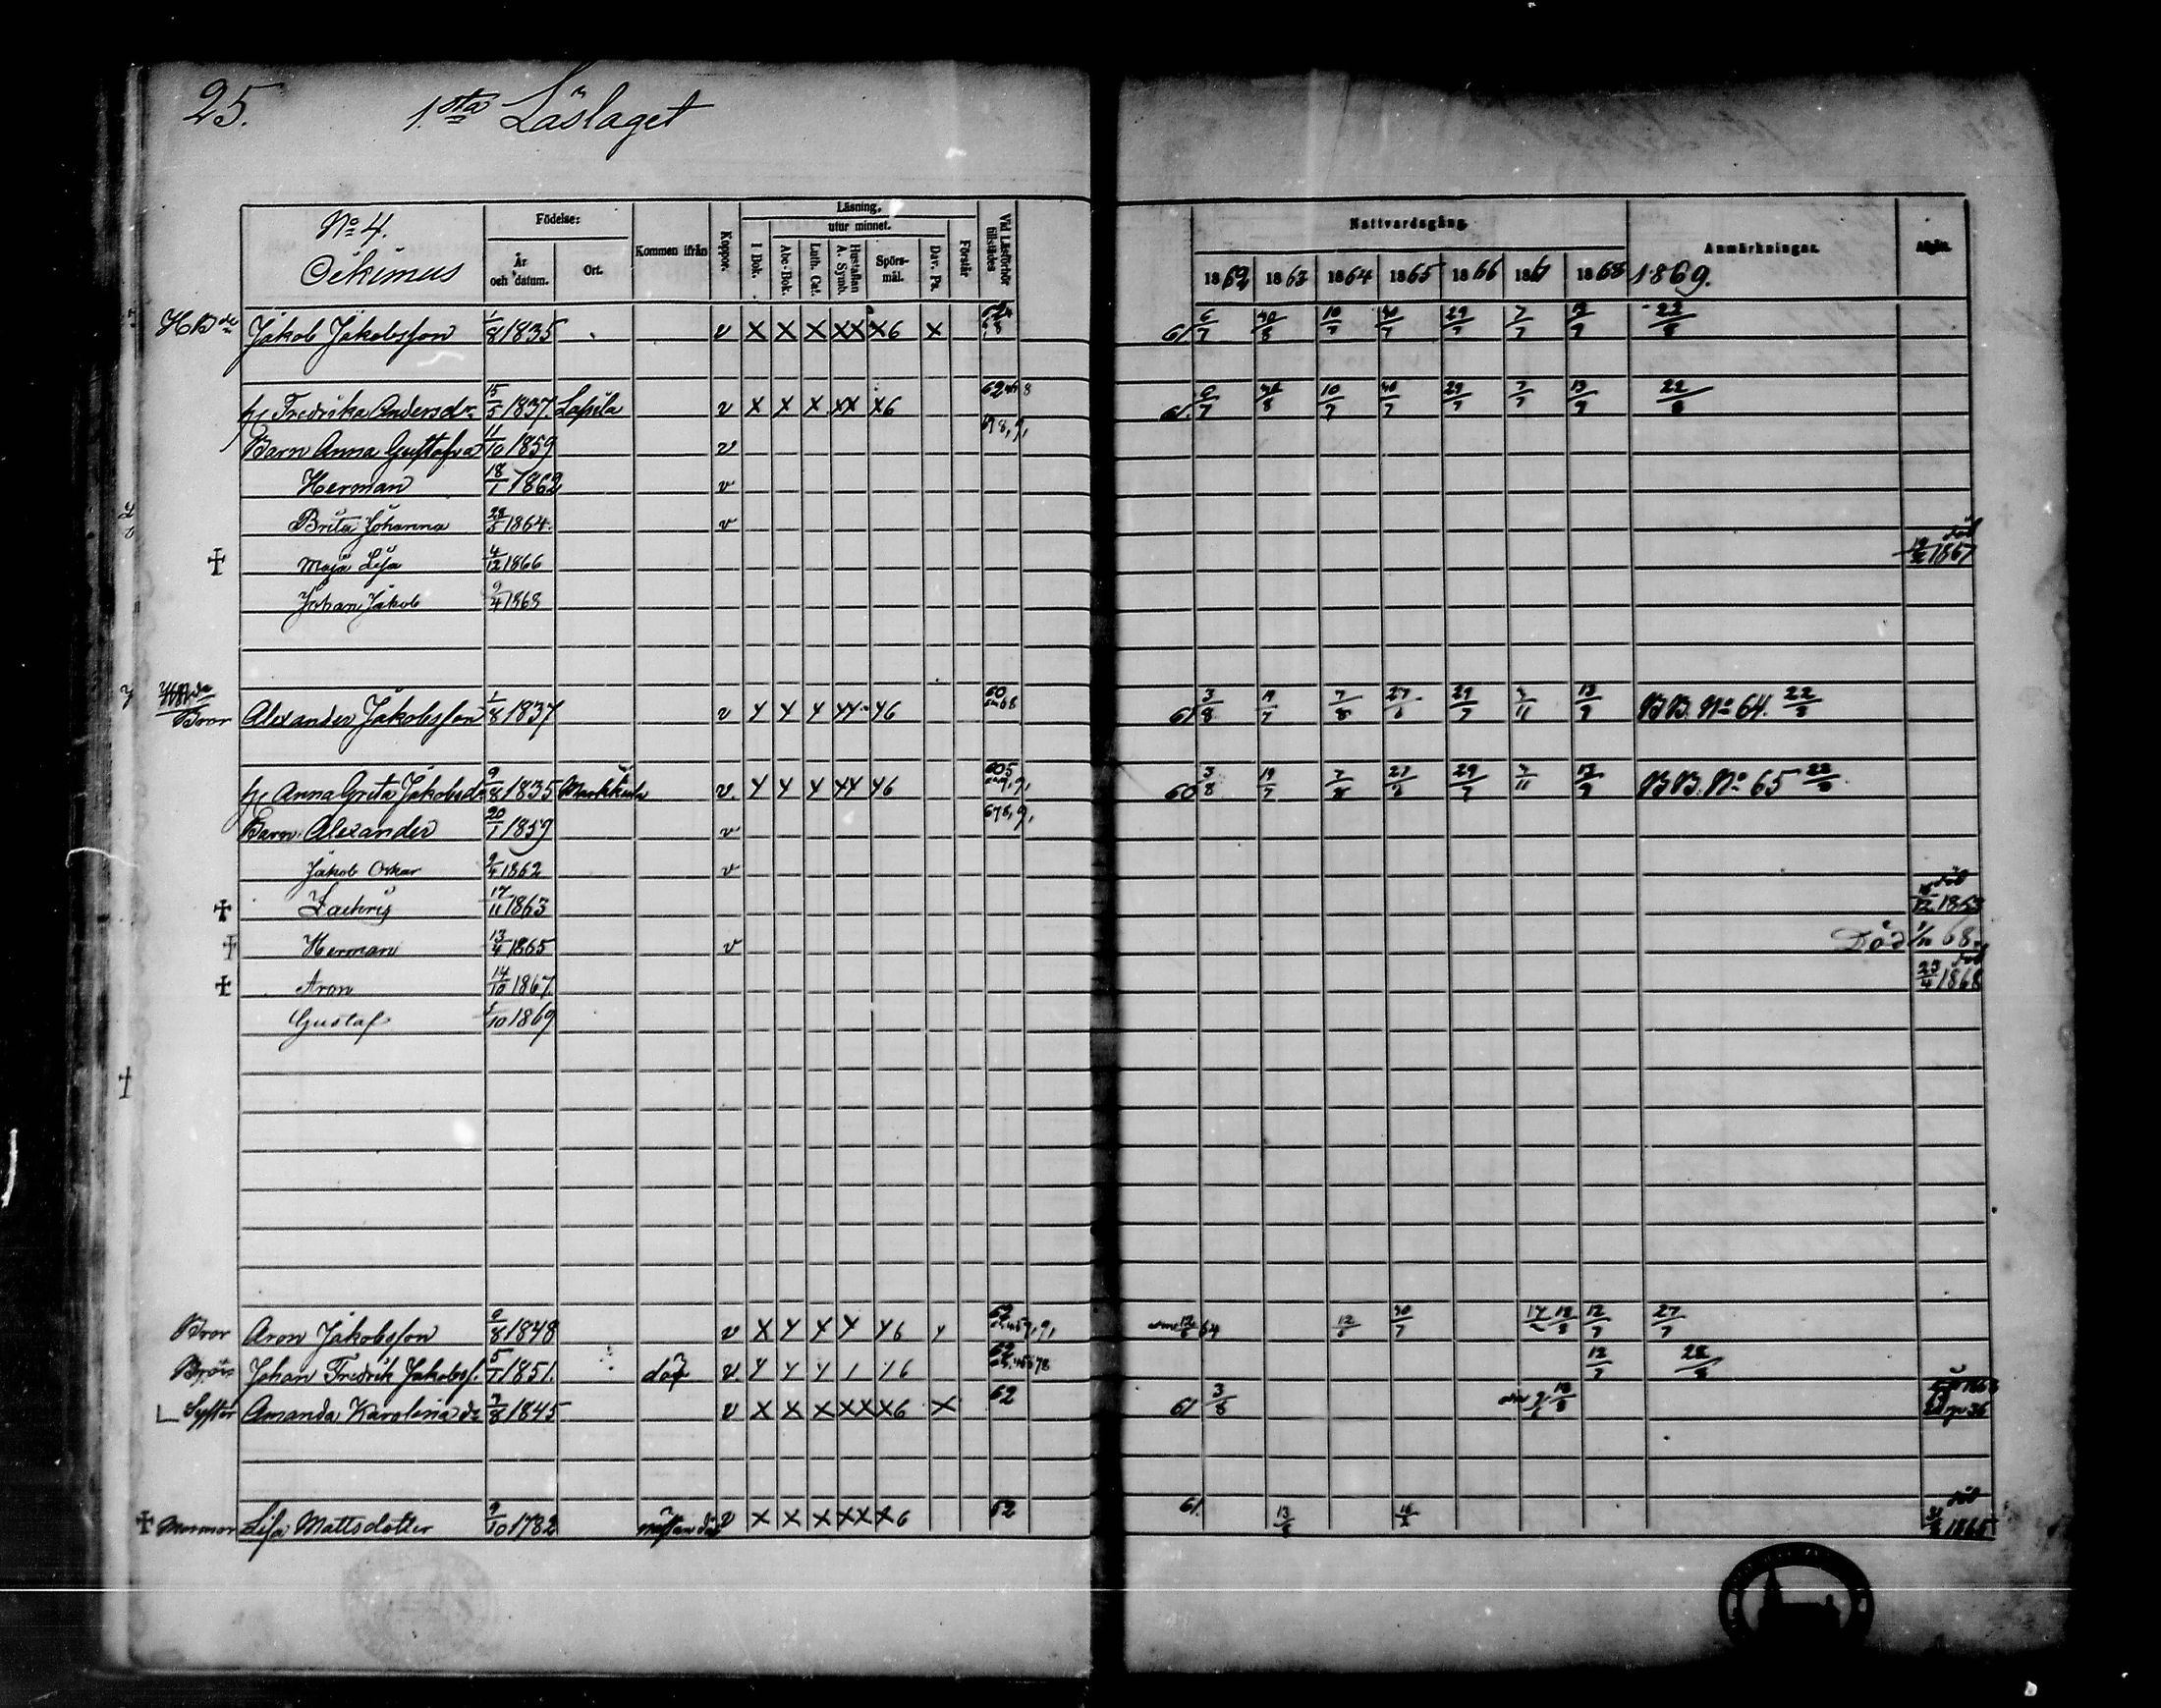 25. 1.sta Läslaget
No 4. Födelse: Kommen ifrån Koppor. Läsning, Förstår Vid Läsförhör tillstädes Nattvardsgång. Anmärkningar. Afgån.
utur minnet.
År och datum. Ort. I Bok. Abc-Bok. Luth. Cat. Hustaflan A. Symb. Spörs-mål. Dav. Ps. 1862 1863 1864 1865 1866 1867 1868 1869.
Jakob Jakobsson 1/8 1835 v X X X XX X6 X 61 6/7 30/8 10/7 30/7 29/7 7/7 12/7 22/8
h. Fredrika Andersdr 15/5 1837. Lassila v X X X XX X6 61. 6/7 30/8 10/7 30/7 29/7 7/7 13/9 22/8
Barn Anna Gustafva 11/10 1859 v
Herman 18/1 1862 v
Brita Johanna 28/5 1864. v
† Maja Lisa 4/12 1866 död 1867
Johan Jakob 9/4 1868
Bror Alexander Jakobsson 1/8 1837 v 61 3/8 19/7 7/8 27/6 29/7 7/11 13/9 BB. No 64. 22/8
h. Anna Greta Jakobsdr 9/8 1835 v. 60 3/8 19/7 7/8 27/6 29/7 7/11 13/9 BB. No 65 22/8
Barn Alexander 20/1 1859 v
Jakob Oskar 9/4 1862 v
† Zachris 17/11 1863 död 1863
† Herman 13/4 1865 v Död 68.
† Aron 14/10 1867. död 23/4 1868
Gustaf 1/10 1869
Bror Aron Jakobsson 1848 v X 6 62 64 12/6 30/7 12/7 27/7
Bror Johan Fredrik Jakobss. 5/1 1851. v. 6 62 12/7 22/8
Syster Amanda Karolina dr 3/8 1845 v X X X XX X6 X 62 61 3/8
† Mormor Lisa Mattsdotter 9/10 1782 v X X X XX X6 62 61. 13/8 död 1865